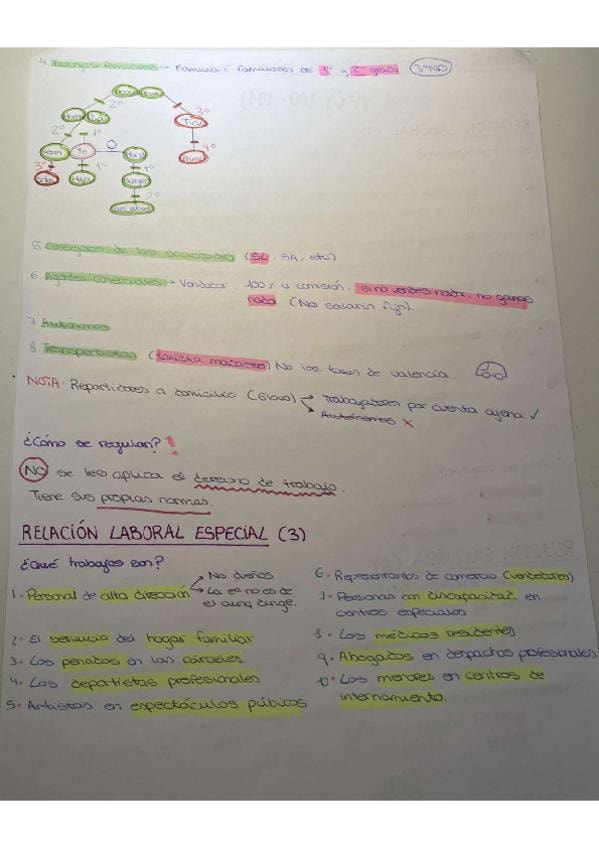 4. Trabajos familiares → Familia = familiares de 1º y 2º grado 3º NO
2º
3º
Tíos
2º
1º
4º
Yo
0
3º
1º
1º
Hijo
Suegros
2º
5. Consejeros de las sociedades (SL, SA, etc)
6. Agentes comerciales → Vendedor, 100% a comisión, si no vendes nada, no ganas
nada. (No salario fijo).
7. Autónomos
8. Transportistas (taxista) No los buses de valencia.
NOTA: Repartidores a domicilio (Glovo) → Trabajadores por cuenta ajena ✓
→ Autónomos ✗
¿Cómo se regulan? !
NO se les aplica el derecho de trabajo.
Tiene sus propias normas.
RELACIÓN LABORAL ESPECIAL (3)
¿Qué trabajos son?
1. Personal de alta dirección → No dueños
→ La es no es
el aunq dirige.
2. El servicio del hogar familiar
3. Los penados en las cárceles.
4. Los deportistas profesionales
5. Artistas en espectáculos públicos
6. Representantes de comercio (vendedores)
7. Personas con discapacidad en
centros especiales
8. Los médicos residentes
9. Abogados en despachos profesionales
10. Los menores en centros de
internamiento.